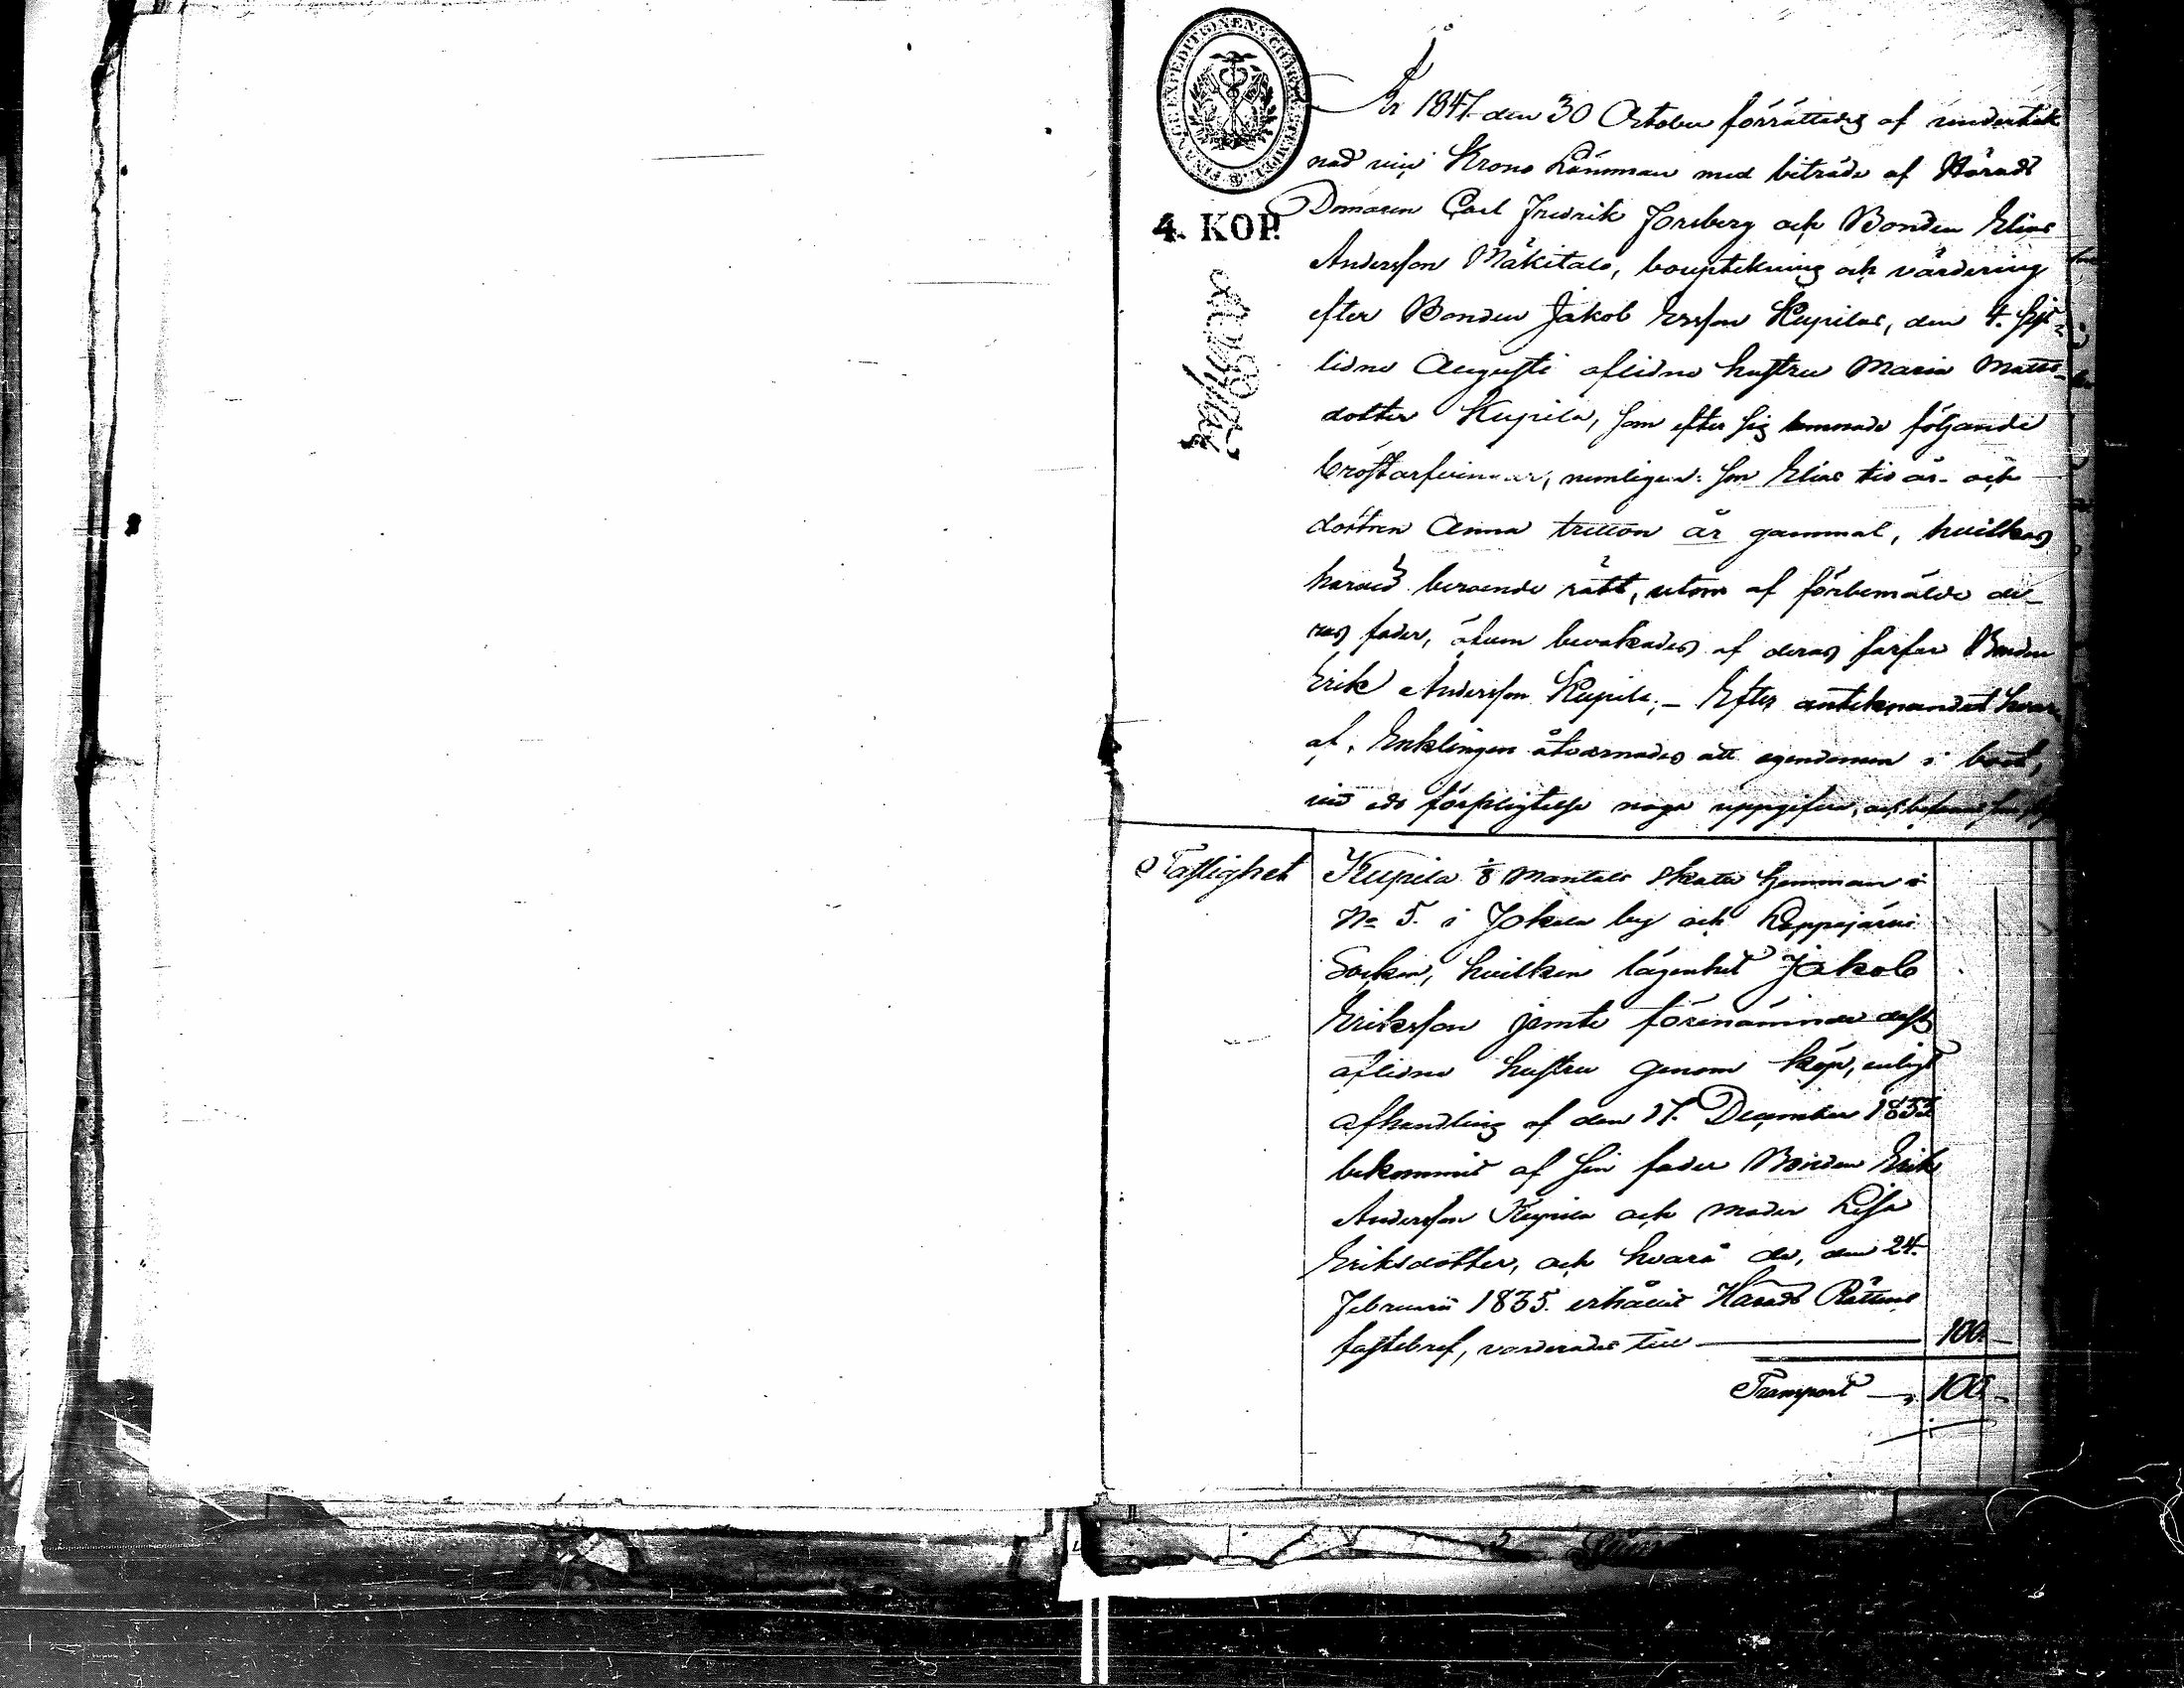 FINANCE EXPEDITIONENS CHARTÆ STEMPEL
4. KOP.
År 1847 den 30 October förrättades af undertek
nad min Krono Länsman med biträde af Härads
Domaren Carl Fredrik Forsberg och Bonden Elias
Andersson Mäkitalo, bouptekning och värdering
efter Bonden Jakob Ersson Kupilas, den 4. sist-
lidne Augusti aflidne hustru Maria Matts-
dotter Kupila, som efter sig lemnade följande
bröstarfvingar, nemligen: son Elias tio år och
dottren Anna tretton år gammal, hvilkas
häraf beroende rätt, utom af förbemälde de-
ras fader, äfven bevakades af deras farfar Bonden
Erik Andersson Kupila; - Efter antecknandet hvar-
af, Enklingen åtvarnades att egendomen i boet,
vid eds förpligtelse noga uppgifva, och befanns
Fastighet
Kupila 1/8 Mantals Skatte Hemman
No 5. i Jokela by och Lappajärvi
Socken, hvilken lägenhet Jakob
Eriksson jemte förenämnde dess
aflidne hustru genom köp, enligt
afhandling af den 17. December 1833
bekommit af sin fader Bonden Erik
Andersson Kupila och moder Lisa
Eriksdotter, och hvarå de, den 24.
Februarii 1835. erhållit Härads Rättens
fastebref, varderades till 100. -
Transport 100. -